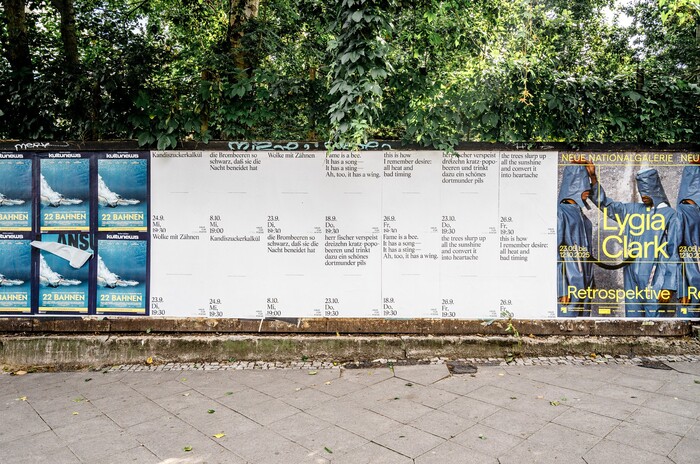 kulturnews
kulturnews
kulturnews
22 BAHNEN
22 BAHNEN
22 BAHNEN
Kandiszuckerkalkül
24.9.
Mi,
19:30
die Brombeeren so
schwarz, daß sie die
Nacht beneidet hat
8.10.
Mi,
19:00
Wolke mit Zähnen
23.9.
Di,
19:30
Fame is a bee.
It has a song—
It has a sting—
Ah, too, it has a wing.
18.9.
Do,
19:30
this is how
I remember desire:
all heat and
bad timing
26.9.
Fr,
19:30
herr fischer verspeist
dreizehn kratz-popo-
beeren und trinkt
dazu ein schönes
dortmunder pils
23.10.
Do,
19:30
the trees slurp up
all the sunshine
and convert it
into heartache
26.9.
Fr,
19:30
22 BAHNEN
22 BAHNEN
22 BAHNEN
Wolke mit Zähnen
23.9.
Di,
19:30
Kandiszuckerkalkül
24.9.
Mi,
19:30
die Brombeeren so
schwarz, daß sie die
Nacht beneidet hat
8.10.
Mi,
19:00
herr fischer verspeist
dreizehn kratz-popo-
beeren und trinkt
dazu ein schönes
dortmunder pils
23.10.
Do,
19:30
Fame is a bee.
It has a song—
It has a sting—
Ah, too, it has a wing.
18.9.
Do,
19:30
the trees slurp up
all the sunshine
and convert it
into heartache
26.9.
Fr,
19:30
this is how
I remember desire:
all heat and
bad timing
26.9.
Fr,
19:30
NEUE NATIONALGALERIE
NEUE
Lygia
Clark
23.05 bis
12.10.2025
Retrospektive
23.05
12.10
Re